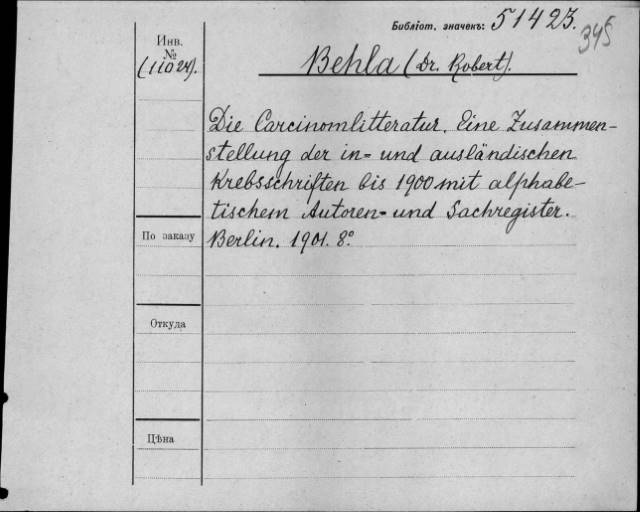 Библіот. значекъ: 51423.
345
Инв.
№
(11024).
Behla (Dr. Robert).
Die Carcinomlitteratur. Eine Zusammen-
stellung der in- und ausländischen
Krebsschriften bis 1900 mit alphabe-
tischem Autoren- und Sachregister.
По заказу
Berlin. 1901. 8°.
Откуда
Цѣна